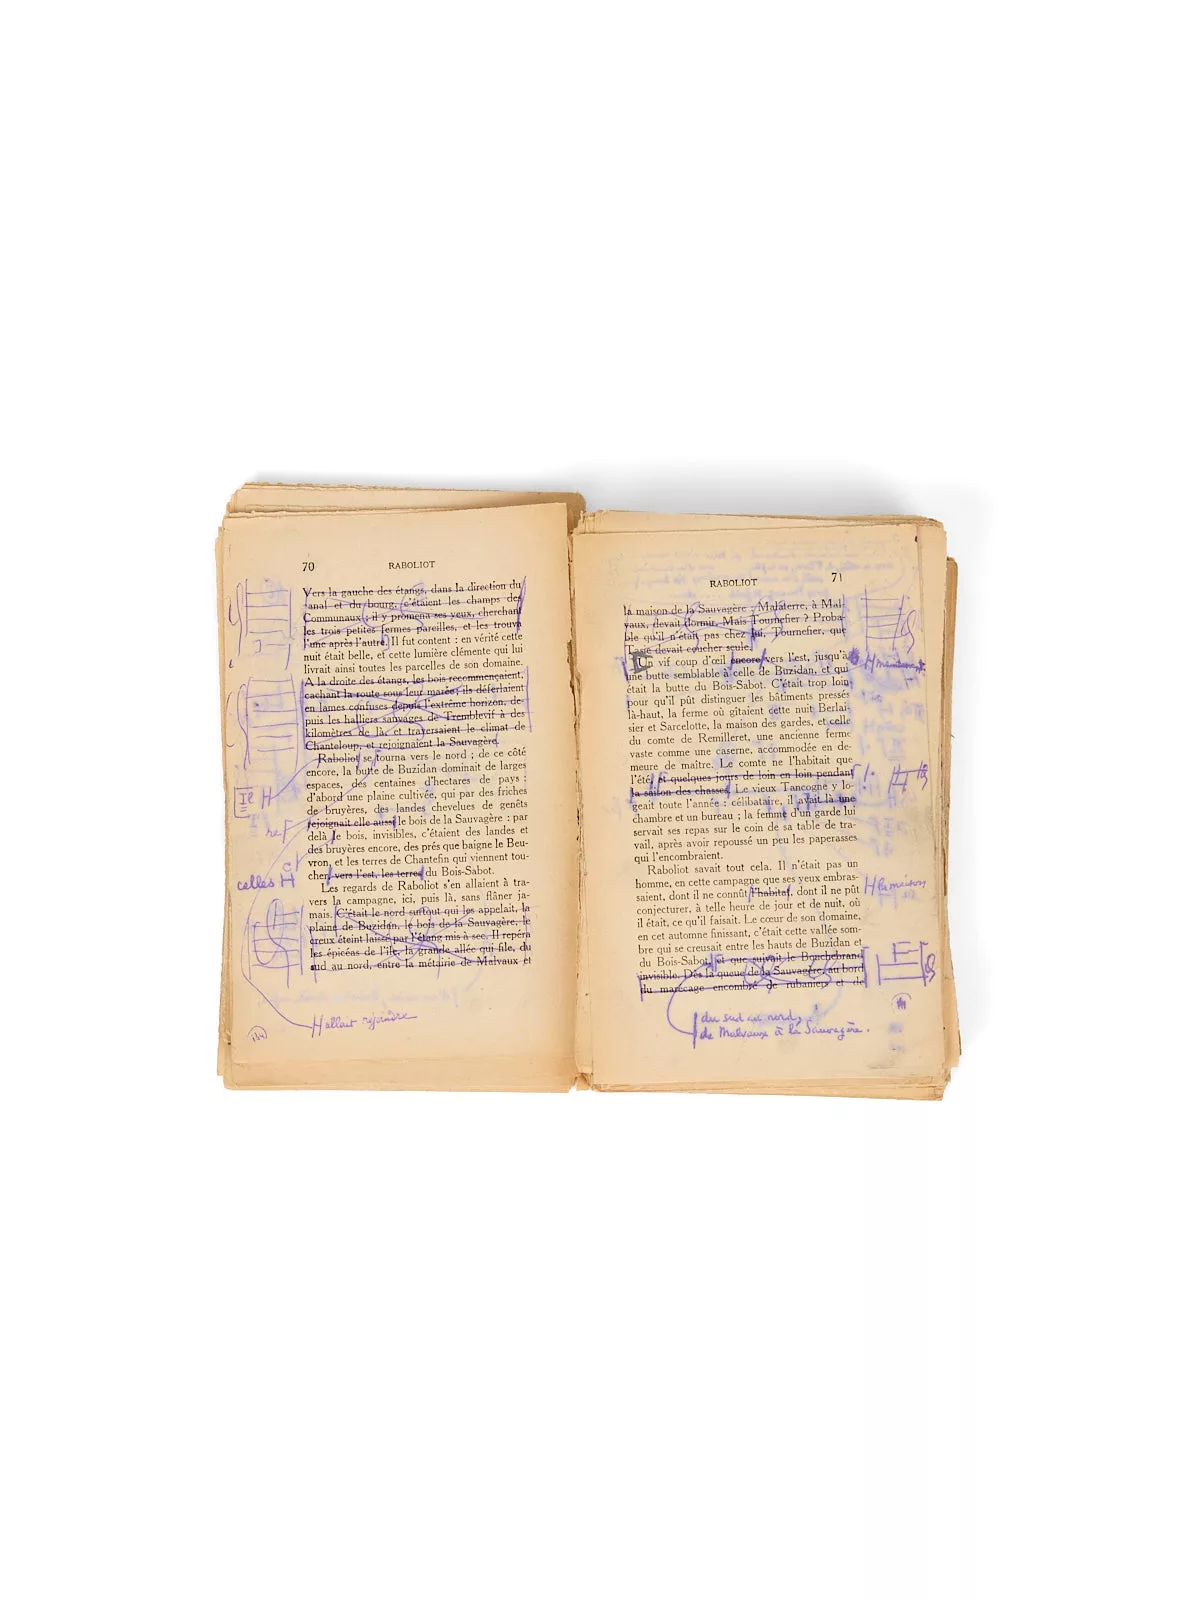 70 RABOLIOT
Vers la gauche des étangs, dans la direction du
canal et du bourg, c'étaient les champs des
Communaux ; il y promena ses yeux, cherchant
les trois petites fermes pareilles, et les trouva
l'une après l'autre. Il fut content : en vérité cette
nuit était belle, et cette lumière clémente qui lui
livrait ainsi toutes les parcelles de son domaine.
A la droite des étangs, les bois recommençaient,
cachant la route sous leur marée ; ils déferlaient
en lames confuses depuis l'extrême horizon, de-
puis les halliers sauvages de Tremblevif à des
kilomètres de là, et traversaient le climat de
Chanteloup, et rejoignaient la Sauvagère.
Raboliot se tourna vers le nord ; de ce côté
encore, la butte de Buzidan dominait de larges
espaces, des centaines d'hectares de pays :
d'abord une plaine cultivée, qui par des friches
de bruyères, des landes chevelues de genêts
rejoignait elle aussi le bois de la Sauvagère ; par
delà le bois, invisibles, c'étaient des landes et
des bruyères encore, des prés que baigne le Beu-
vron, et les terres de Chantefin qui viennent tou-
cher, vers l'est, les terres du Bois-Sabot.
celles
Les regards de Raboliot s'en allaient à tra-
vers la campagne, ici, puis là, sans flâner ja-
mais. C'était le nord surtout qui les appelait, la
plaine de Buzidan, le bois de la Sauvagère, le
creux éteint laissé par l'étang mis à sec. Il repéra
les épicéas de l'île, la grande allée qui file, du
sud au nord, entre la métairie de Malvaux et
allait rejoindre
RABOLIOT 71
la maison de la Sauvagère : Malaterre, à Mal-
vaux, devait dormir. Mais Tournefier ? Proba-
ble qu'il n'était pas chez lui, Tournefier, que
Tasie devait coucher seule.
Un vif coup d'œil encore vers l'est, jusqu'à
maintenant
une butte semblable à celle de Buzidan, et qui
était la butte du Bois-Sabot. C'était trop loin
pour qu'il pût distinguer les bâtiments pressés
là-haut, la ferme où gîtaient cette nuit Berlai-
sier et Sarcelotte, la maison des gardes, et celle
du comte de Remilleret, une ancienne ferme
vaste comme une caserne, accommodée en de-
meure de maître. Le comte ne l'habitait que
l'été, et quelques jours de loin en loin pendant
la saison des chasses. Le vieux Tancogne y lo-
geait toute l'année : célibataire, il avait là une
chambre et un bureau ; la femme d'un garde lui
servait ses repas sur le coin de sa table de tra-
vail, après avoir repoussé un peu les paperasses
qui l'encombraient.
Raboliot savait tout cela. Il n'était pas un
homme, en cette campagne que ses yeux embras-
saient, dont il ne connût l'habitat, dont il ne pût
la maison
conjecturer, à telle heure de jour et de nuit, où
il était, ce qu'il faisait. Le cœur de son domaine,
en cet automne finissant, c'était cette vallée som-
bre qui se creusait entre les hauts de Buzidan et
du Bois-Sabot, et que suivait le Bouchebrand
invisible. Dès la queue de la Sauvagère, au bord
du marécage encombré de rubaniers et de
du sud au nord,
de Malvaux à la Sauvagère.